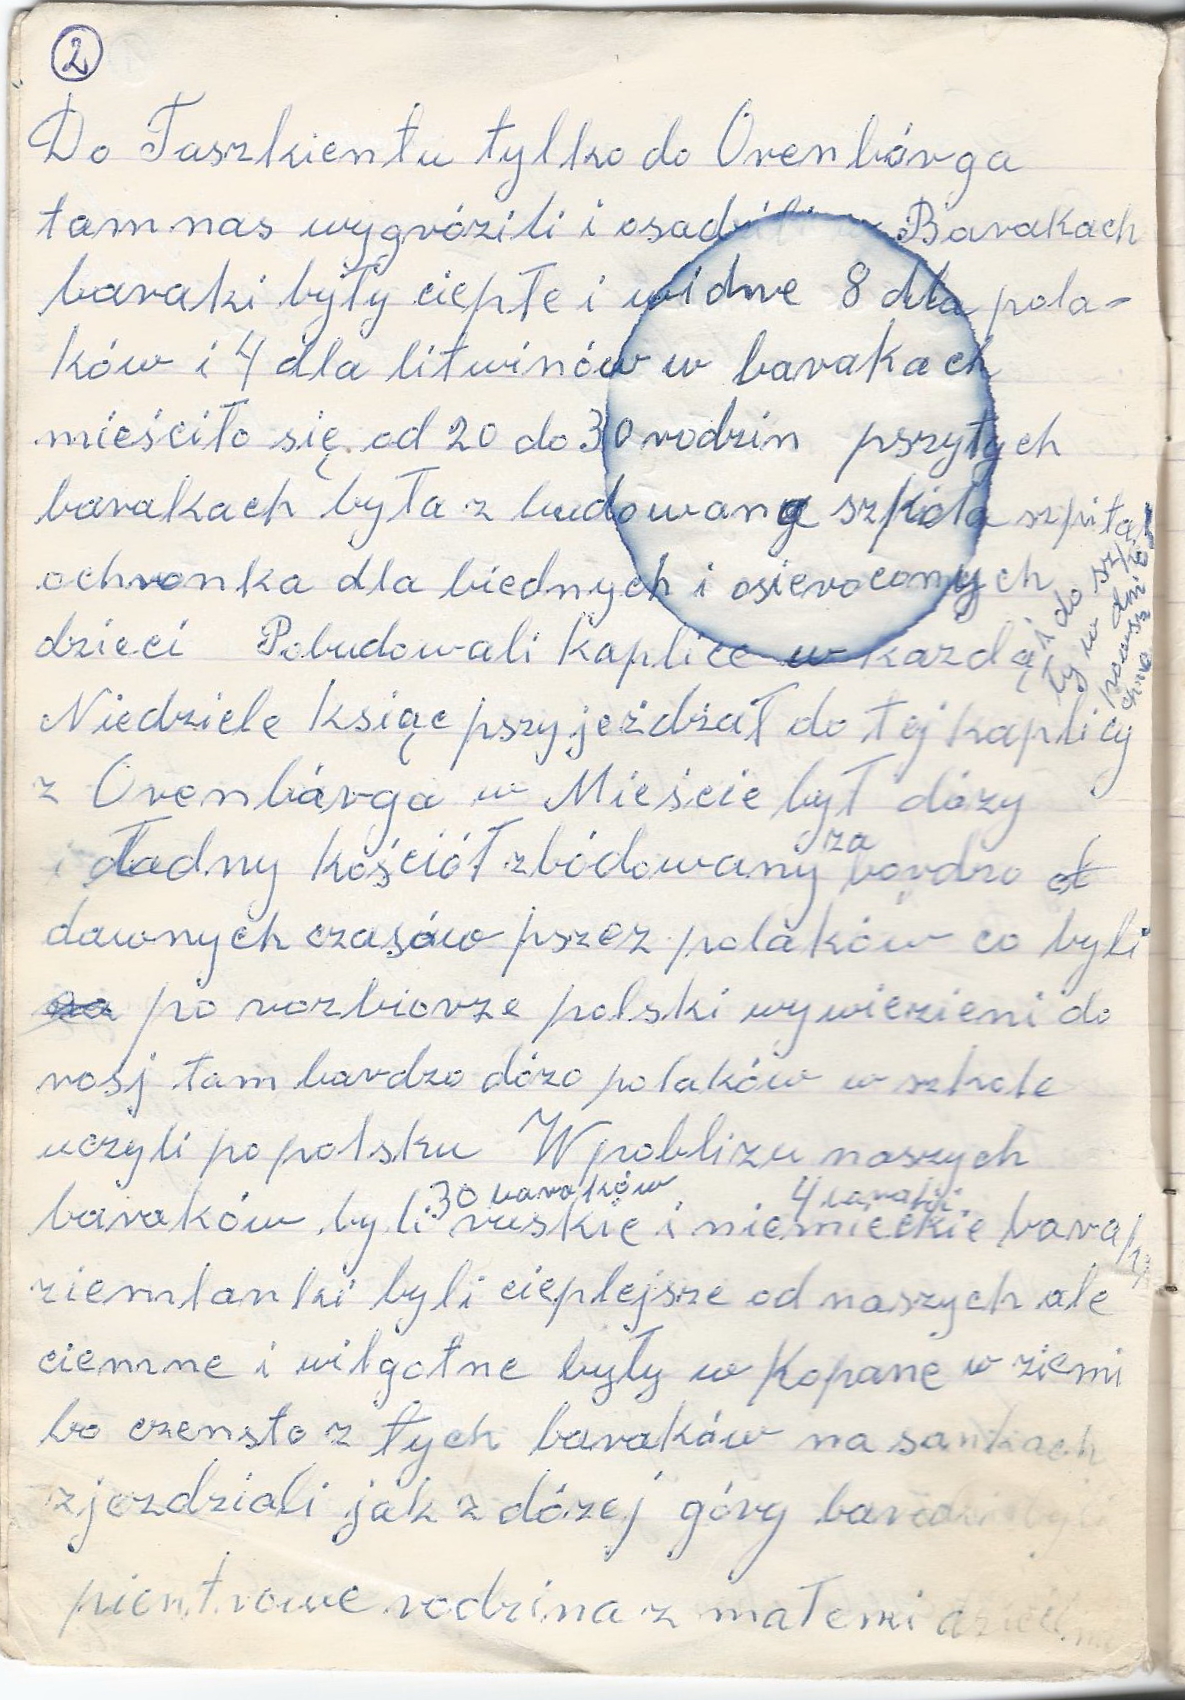 2
Do Taszkientu tylko do Orenbórga
tam nas wygrózili i osadzili w Barakach
baraki były ciepłe i widne 8 dla pola-
ków i 4 dla litwinów w barakach
mieściło się od 20 do 30 rodzin pszytych
barakach była z budowana szkoła szpital
ochronka dla biednych i osieroconych
dzieci Pobudowali kaplice w kazdą
Niedziele książe pszyjeżdżał do tej kaplicy
z Orenbórga w Mieście był dózy
i ładny kościół zbódowany bardzo za
dawnych czasów pszez polaków co byli
po rozbiorze polski wywiezieni do
rosj tam bardzo dózo polaków w szkole
uczyli po polsku W poblizu naszych
30 baraków 4 baraki
baraków byli ruskie i niemieckie bara
ziemlanki byli cieplejsze od naszych ale
ciemne i wilgotne były w Kopane w ziemi
bo czensto z tych baraków na sankach
zjezdziali jak z dózej góry baraki byli
pientrowe rodzina z małemi dziećmi